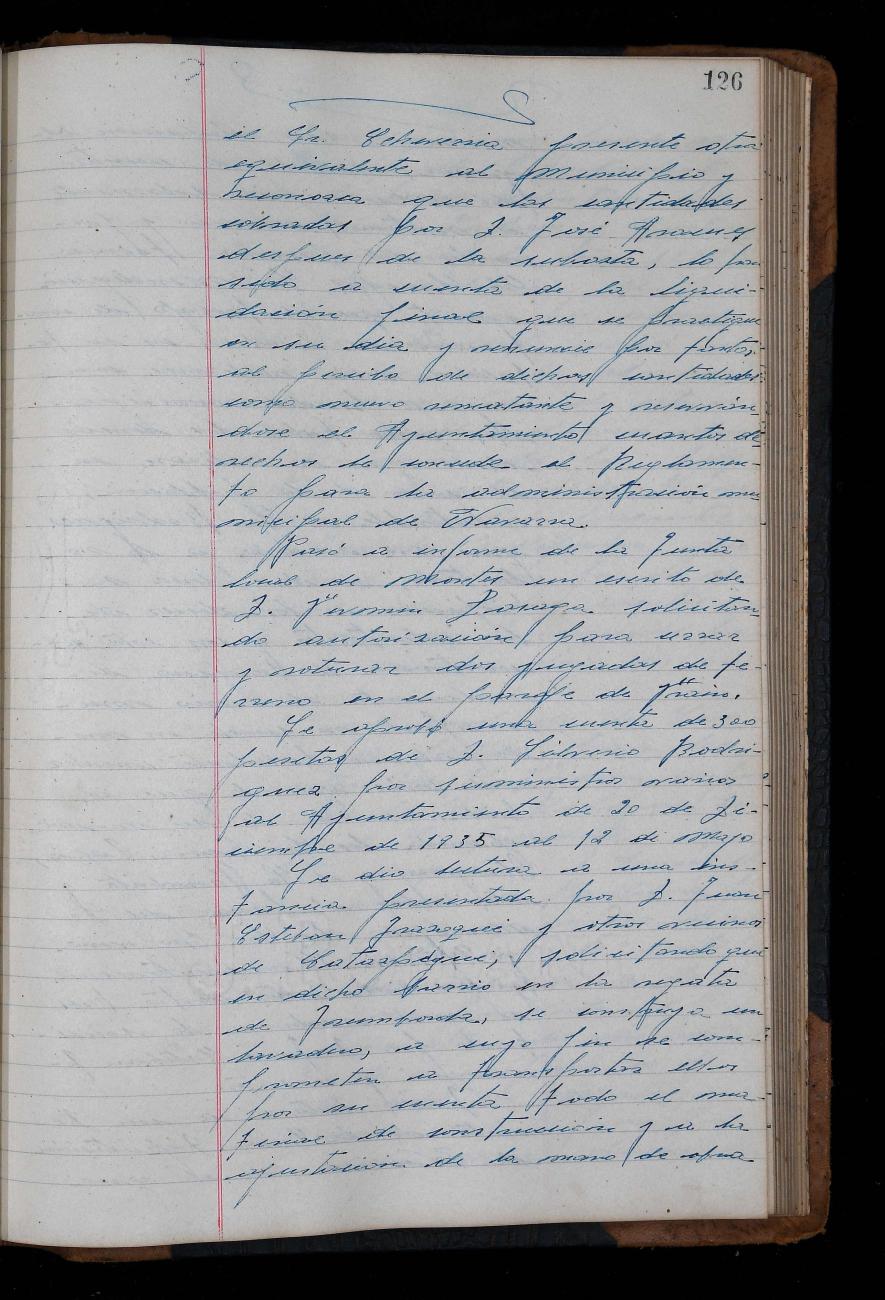 126
el Sr. Echeverria presente otra
equivalente al Municipio y
reconozca que las cantidades
cobradas por D. José
despues de la subasta, lo han
sido a cuenta de la liqui-
dación final que se practique
en su dia y renuncie por tanto,
al percibo de dichas cantidades
como nuevo rematante y reserván-
dose el Ayuntamiento cuantos de-
rechos le concede el Reglamen-
to para la administración mu-
nicipal de Navarra.
Pasó a informe de la Junta
local de Montes un escrito de
D. Fermin solicitan-
do autorización para
y roturar dos yugadas de te-
rreno en el paraje de
Se aprobó una cuenta de 300
pesetas de D. Silverio Rodri-
guez por suministros varios
al Ayuntamiento de 20 de Di-
ciembre de 1935 al 12 de Mayo
Se dio lectura a una ins-
tancia presentada por D. Juan
Esteban y otros vecinos
de solicitando que
en dicho barrio en la regata
de se construya un
lavadero, a cuyo fin se com-
prometen a transportar ellos
por su cuenta todo el ma-
terial de construcción y a la
ejecución de la mano de obra